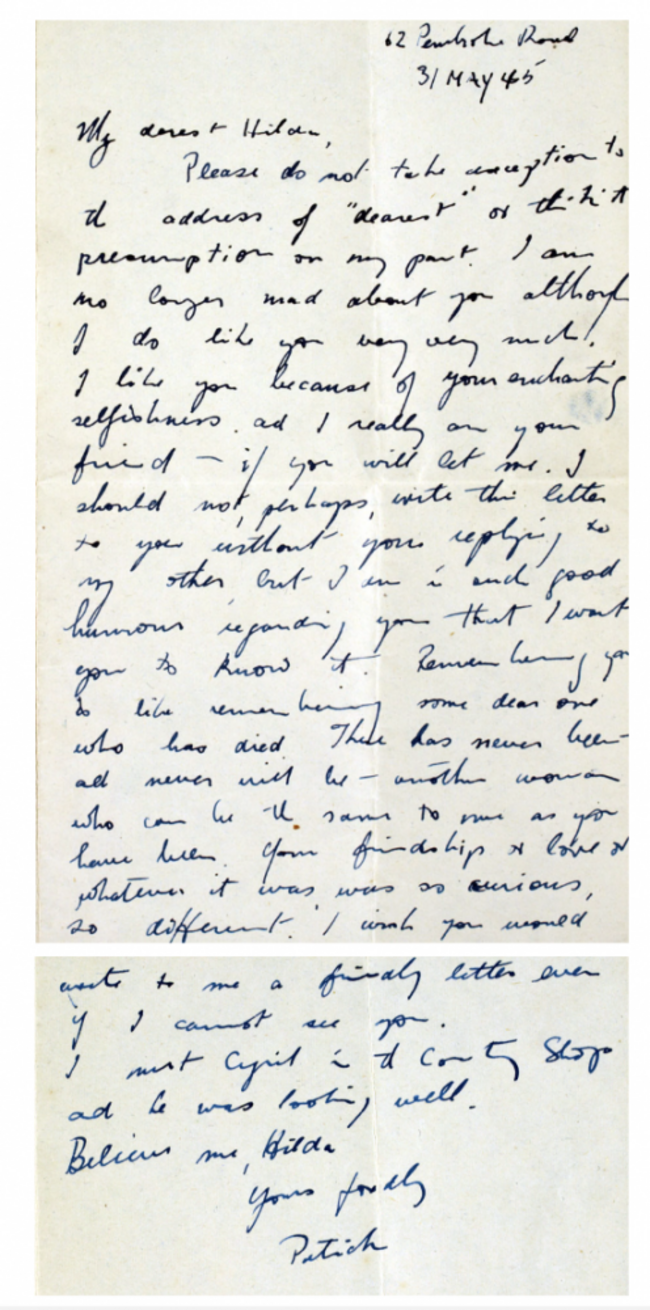 62 Pembroke Road
31 MAY 45
My dearest Hilda,
Please do not take exception to
th address of "dearest" or think it
presumption on my part. I am
no longer mad about you although
I do like you very very much.
I like you because of your enchanting
selfishness. ad I really am your
friend — if you will let me. I
should not, perhaps, write this letter
to you without your replying to
my other but I am in such good
humour regarding you that I want
you to know it. Remembering you
is like remembering some dear one
who has died. There has never been
ad never will be — another woman
who can be th same to me as you
have been. Your friendship or love or
whatever it was was so curious,
so different. I wish you would
write to me a friendly letter even
if I cannot see you.
I met Cyril in th Country Shop
ad he was looking well.
Believe me, Hilda
Yours fondly
Patrick